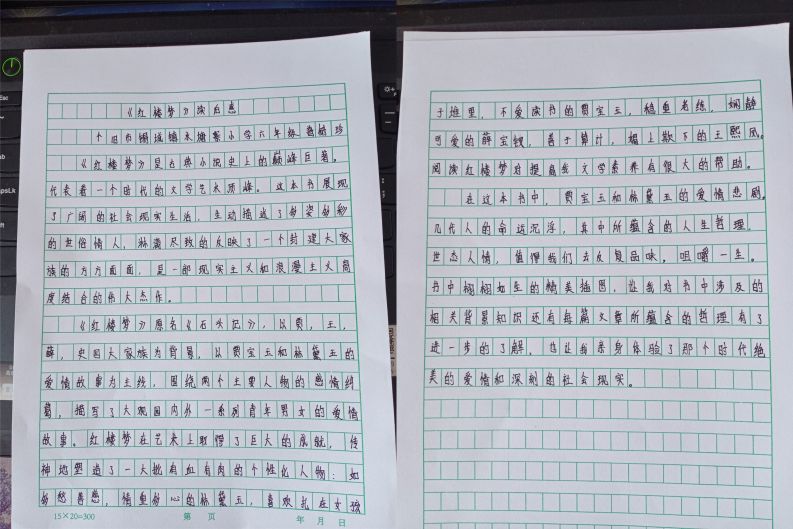 《红楼梦》读后感
个旧市锡城镇永塘寨小学六年级
《红楼梦》是古典小说史上的巅峰巨著。
代表着一个时代的文学艺术顶峰。这本书展现
了广阔的社会现实生活,生动描述了多姿多彩
的世俗情人,淋漓尽致的反映了一个封建大家
族的方方面面,是一部现实主义和浪漫主义高
度结合的伟大杰作。
《红楼梦》原名《石头记》,以贾,王,
薛,史四大家族为背景,以贾宝玉和林黛玉的
爱情故事为主线,围绕两个主要人物的感情纠
葛,描写了大观园内外一系列青年男女的爱情
故事。红楼梦在艺术上取得了巨大的成就,传
神地塑造了一大批有血有肉的个性化人物:如
多愁善感,情重多心的林黛玉,喜欢扎在女孩
15×20=300 第 页 年 月 日
子堆里,不爱读书的贾宝玉,稳重老练,娴静
可爱的薛宝钗,善于算计,媚上欺下的王熙凤。
阅读红楼梦对提高我文学素养有很大的帮助。
在这本书中,贾宝玉和林黛玉的爱情悲剧。
几代人的命运沉浮,其中所蕴含的人生哲理。
世态人情,值得我们去反复品味,咀嚼一生。
书中栩栩如生的精美插图,让我对书中涉及的
相关背景知识还有每篇文章所蕴含的哲理有了
进一步的了解,也让我亲身体验了那个时代绝
美的爱情和深刻的社会现实。